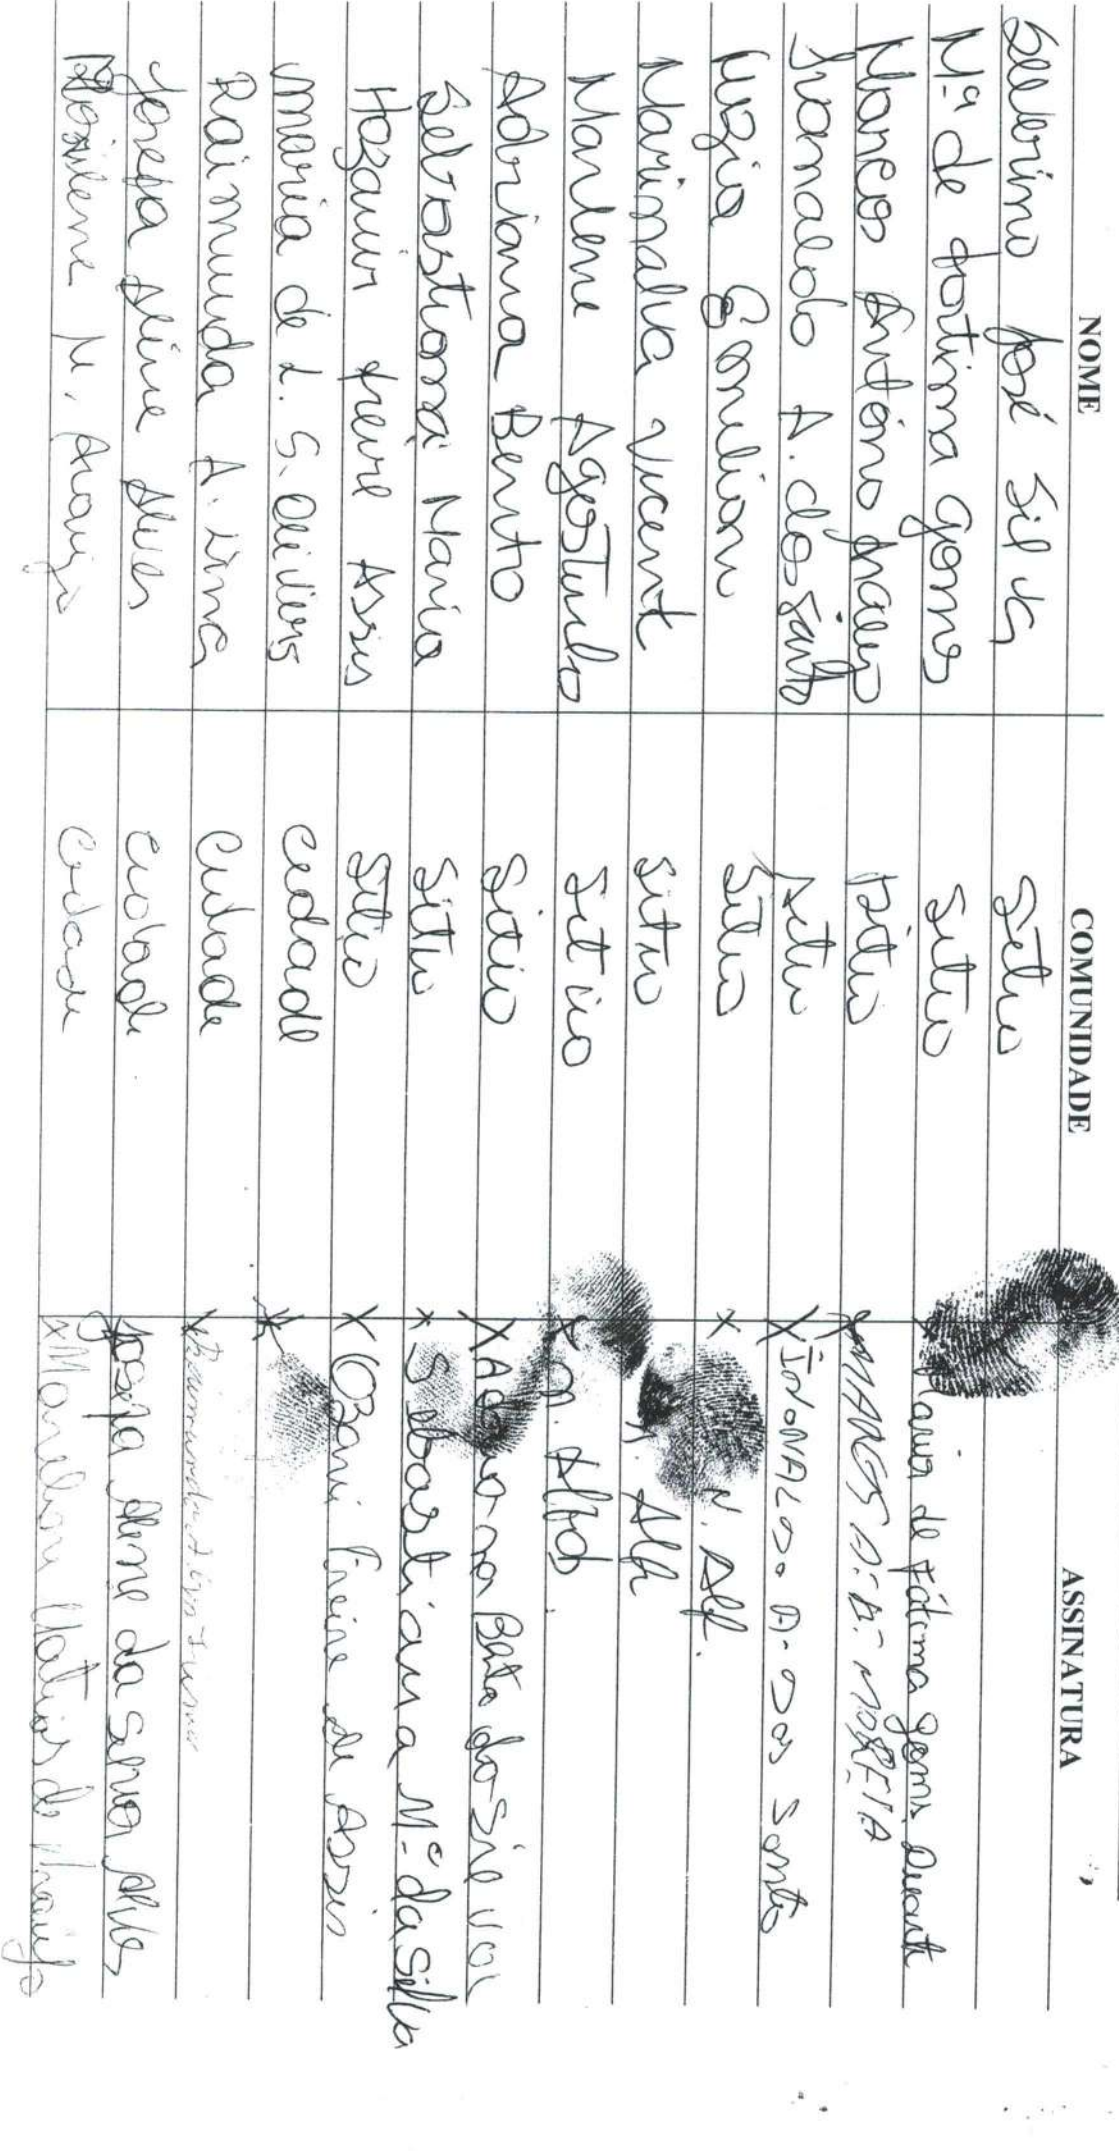 NOME COMUNIDADE ASSINATURA
Severino José Silva Sitio
Mª de Fatima Gomes Sitio Maria de Fátima Gomes Duarte
Marcos Antônio Sitio MARCOS
A. dos Santo Sitio A. DOS Santos
Luzia Emilian Sitio N. Alf.
Marinalva Vicent Sitio Alf
Marlene Agostinho Sitio N. Alfb
Adriana Bento Sitio Adriana Bento da Silva
Sebastiana Maria Sitio Sebastiana Mª da Silva
Freire Assis Sitio Freire de Assis
Maria de L. S. Oliveira Cidade
Raimunda A. Lima Cidade Raimunda
Josefa Alves Cidade Josefa da Silva Alves
M. Araujo Cidade Matias de Araujo